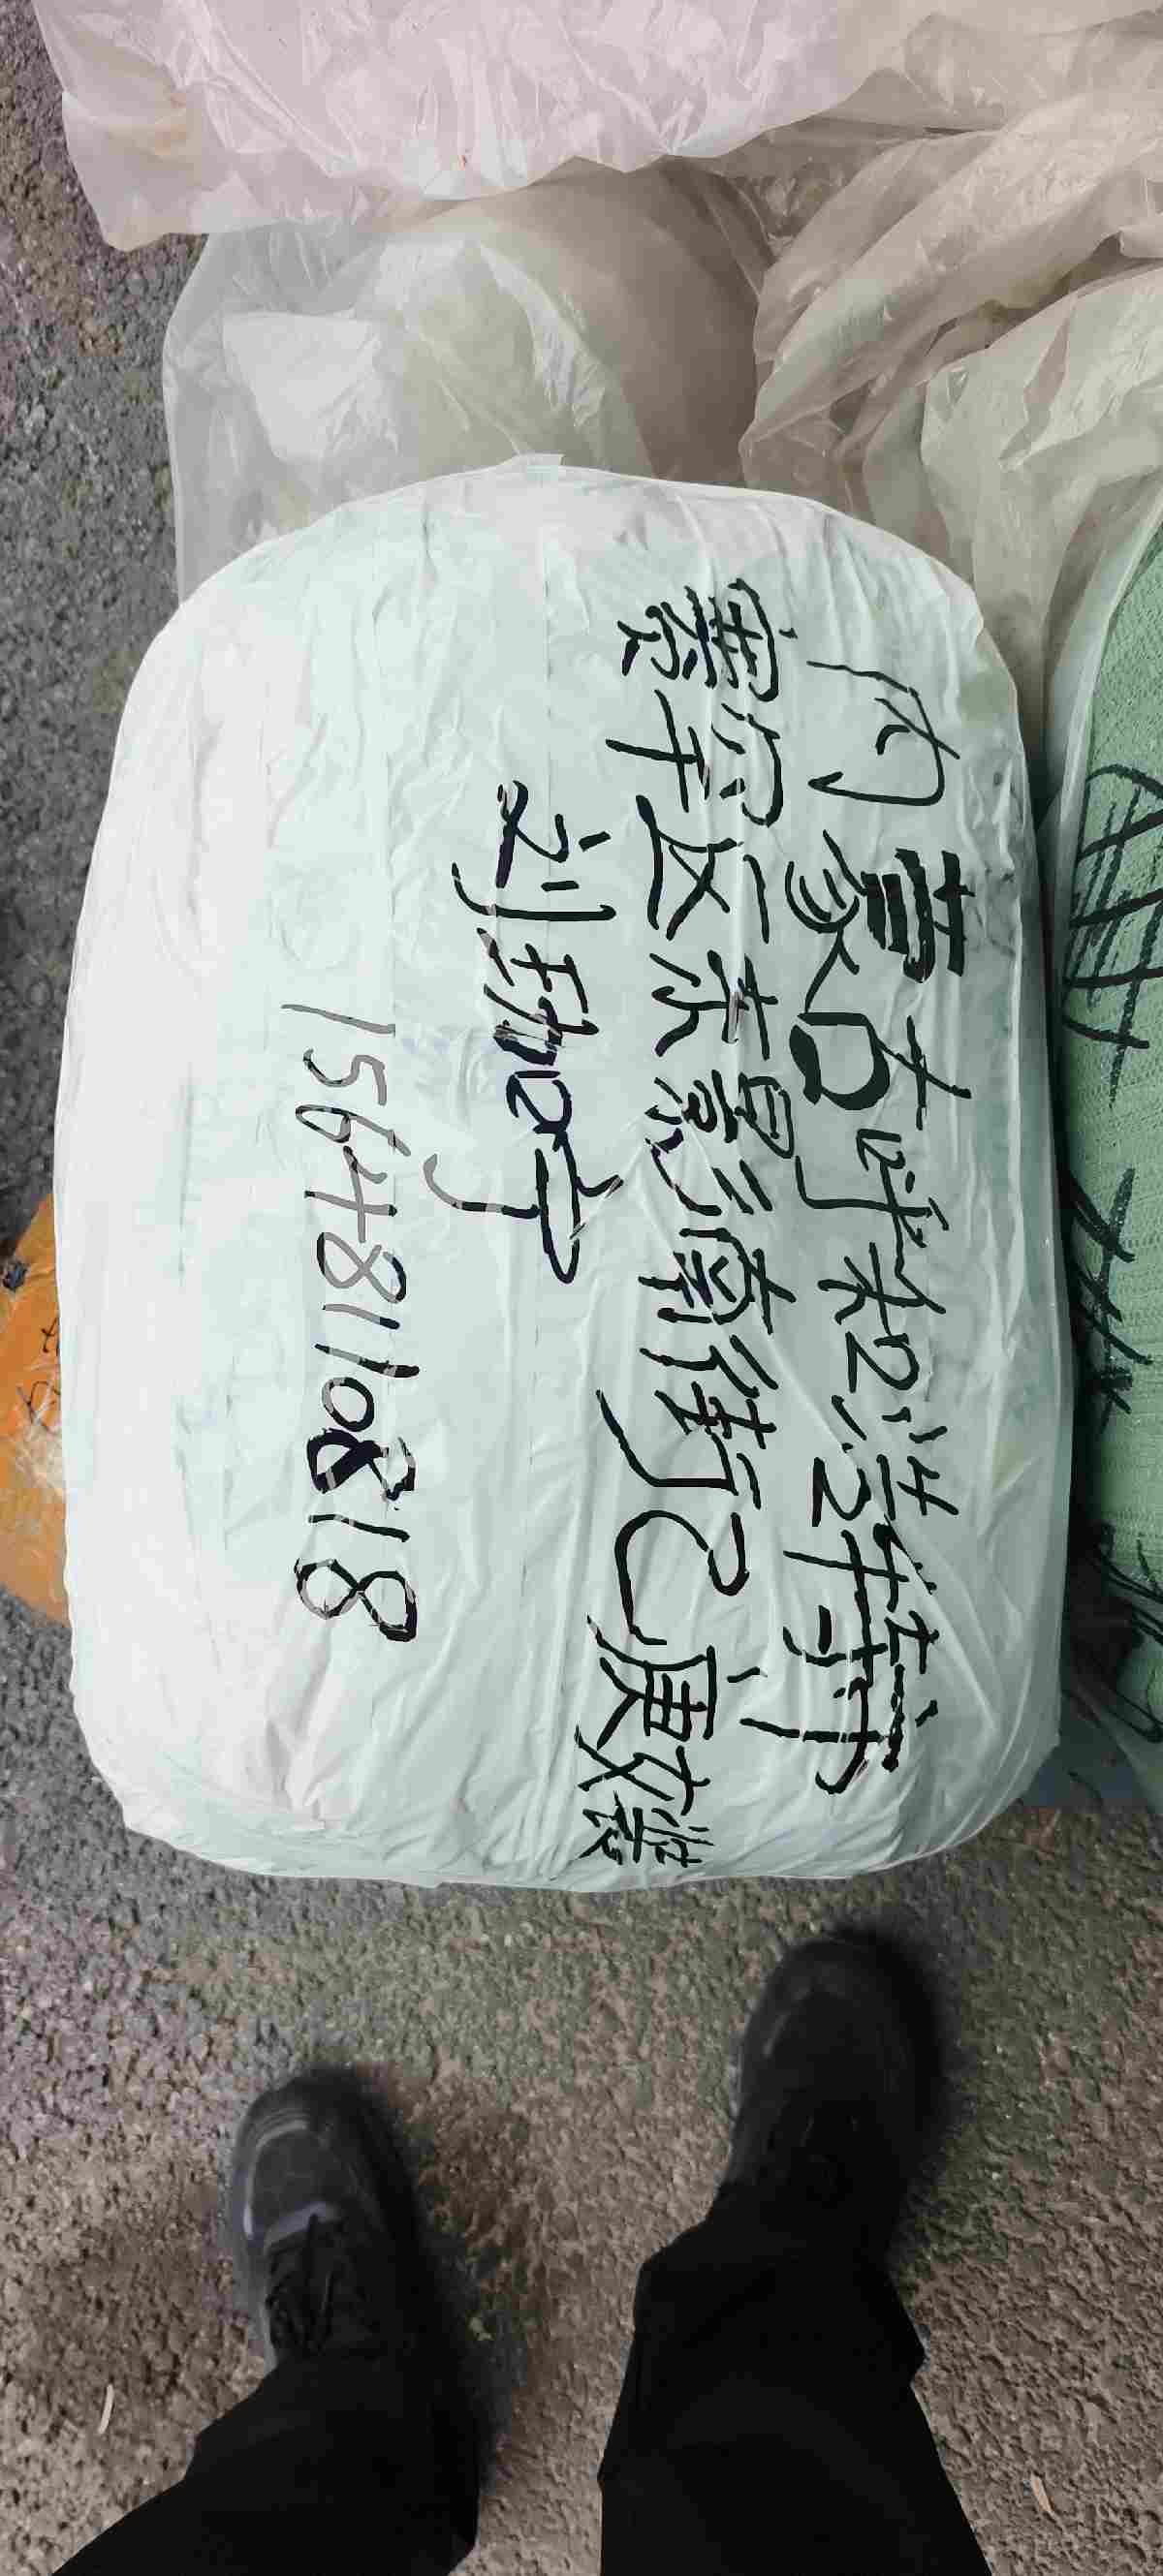 内蒙古呼和浩特市
赛罕区东影南街女装
刘珈宁
15648110818